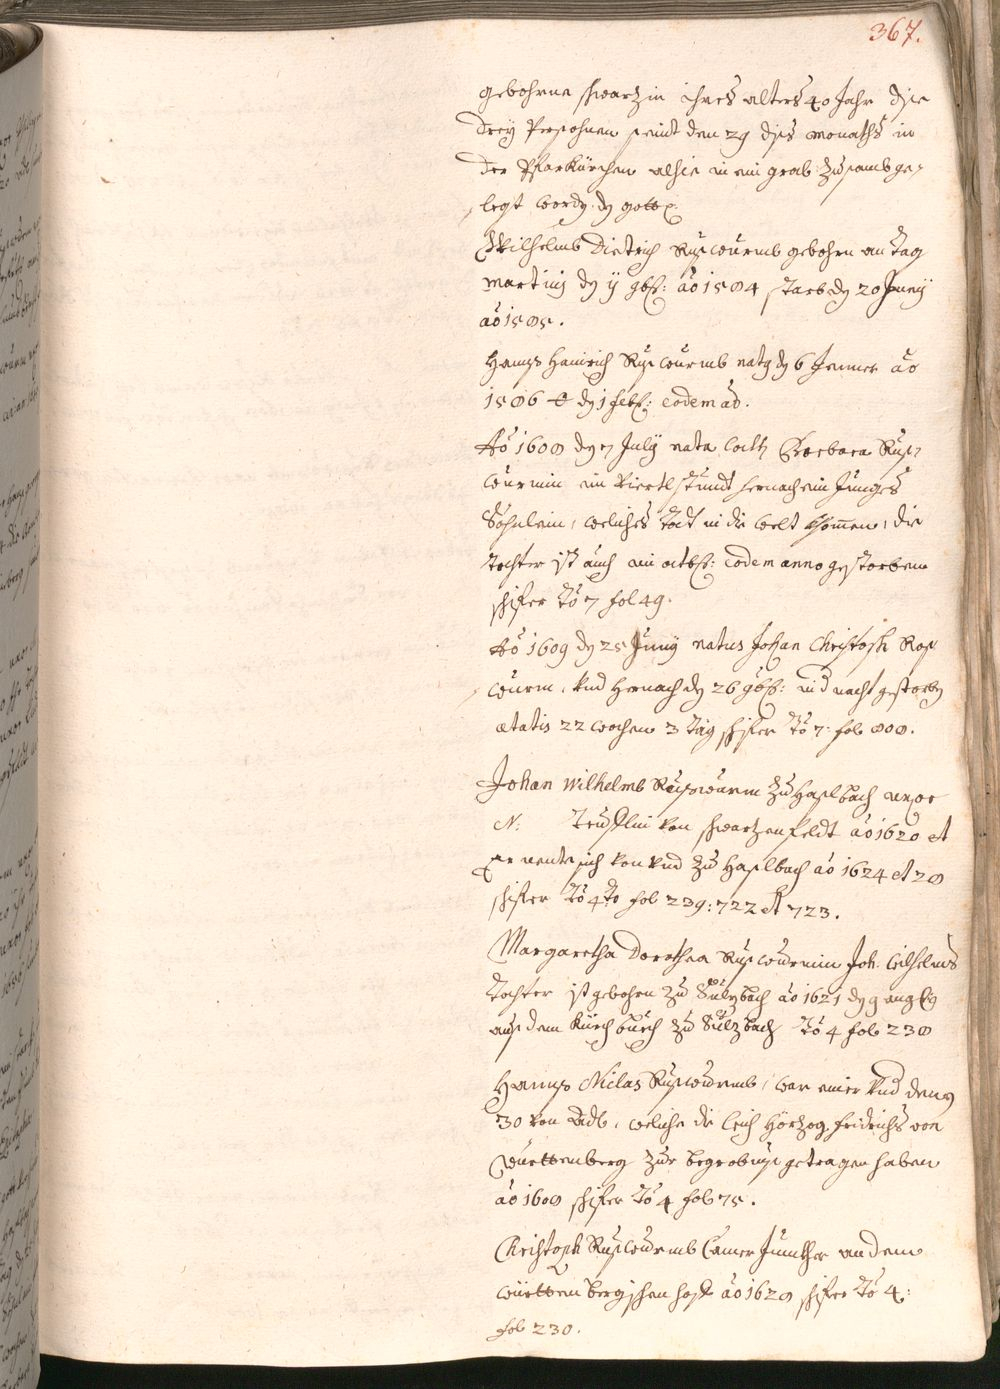 367.
gebohrne schwarzin ihres alters 40 Jahr dise
drey Persohnen seint den 29 dis monaths in
der Pfarkürchen alhie in ein grab zusamb ge-
legt word. gott
Wilhelmb Dietrich Ruswurmb gebohrn an tag
martinj dy ij 9bs: ao 1584 starb dy 20 Junij
ao 1585.
Hanns Hainrich Ruswurmb natg dy 6 Jenner ao
1586 dy 1 feb: eodem ao.
Ao 1608 dy 7 July nata Barbara Rus-
wurmin ein Viertlstundt hernach ein Junges
Söhnlein, welches todt in die welt khomen, die
tochter ist auch im octbs: eodem anno gestorben
schifer to 7 fol 49.
Ao 1609 dy 25 Junij natus Johan Christoph Ros
wurm, vnd hernach dy 26 9bs: nachts gestorben
ætatis 22 wochen 3 täg schifer to 7: fol 888.
Johan Wilhelmb Ruswurm zu Haslbach uxor
N: von schwarzenfeldt ao 1620 et
er nente sich von vnd zu Haslbach ao 1624 et 28
schifer to 4to fol 239: 722 et 723.
Margaretha Dorothea Ruswurmin Joh: Wilhelms
tochter ist gebohrn zu Sulzbach ao 1621 dy 9 aug
aus dem Kürchbuch zu Sulzbach to 4 fol 238
Hanns Niclas Ruswurmb, war einer vnd denen
30 von Adl, welche die leich Hörzog fridrichs von
Württenberg zur begrebnus getragen haben
ao 1608 schifer to 4 fol 75.
Christoph Ruswurmb Camer Junckher an dem
württenbergischen hoff ao 1628 schifer to 4:
fol 230.